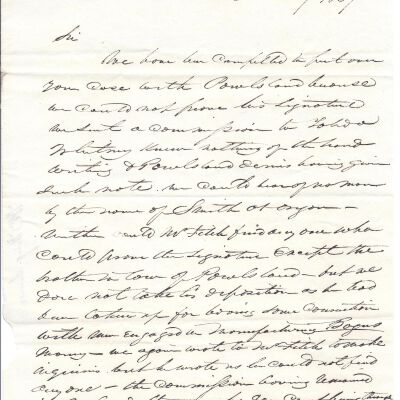 Sir
We have been compelled to put over
your case with Powelsland because
we could not prove his signature
we sent a commission to Toledo
Whitney knew nothing of the hand
writing & Powelsland denies having given
such note. we could hear of no man
by the name of Smith at
neither could Mr Fitch find any one who
could prove the signature Except the
brother in law of Powelsland – but we
dare not take his deposition as he had
been taken up for having some connection
with men engaged in manufacturing Bogus
money – we again wrote to Mr Fitch to make
inquiries but he wrote us he could not find
any one – the commission having